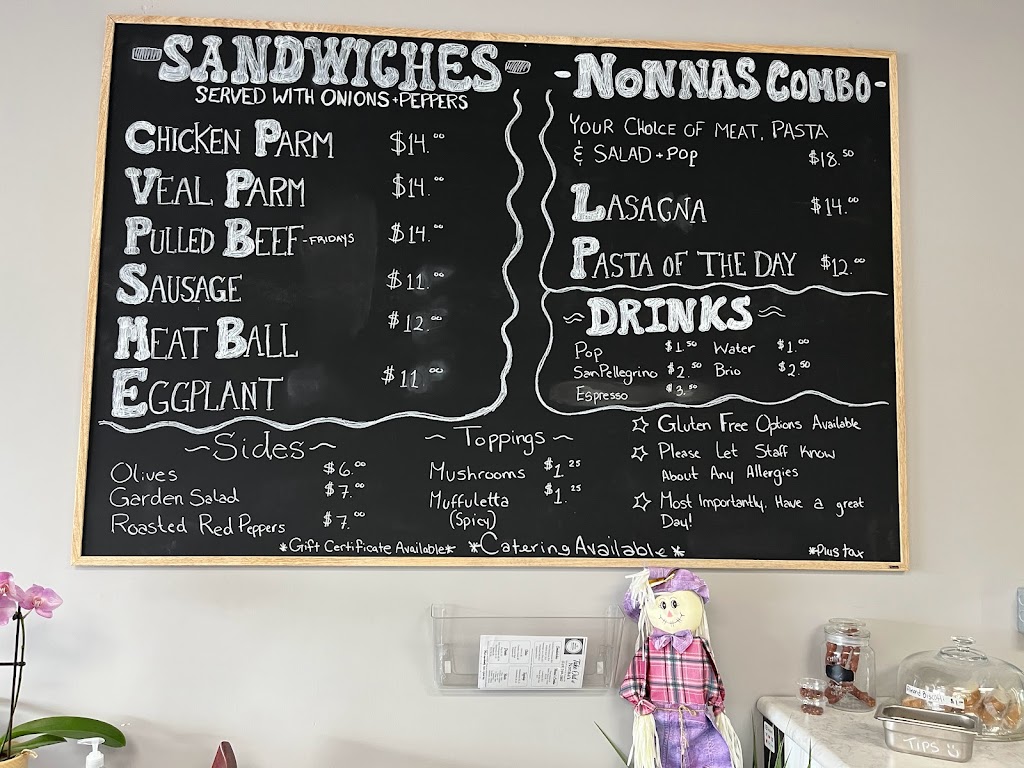 SANDWICHES
SERVED WITH ONIONS + PEPPERS
CHICKEN PARM $14.00
VEAL PARM $14.00
PULLED BEEF - FRIDAYS $14.00
SAUSAGE $11.00
MEAT BALL $12.00
EGGPLANT $11.00
- NONNAS COMBO -
YOUR CHOICE OF MEAT, PASTA
& SALAD + POP $18.50
LASAGNA $14.00
PASTA OF THE DAY $12.00
~ DRINKS ~
Pop $1.50 Water $1.00
SanPellegrino $2.50 Brio $2.50
Espresso $3.50
~ Sides ~
Olives $6.00
Garden Salad $7.00
Roasted Red Peppers $7.00
~ Toppings ~
Mushrooms $1.25
Muffuletta $1.25
(Spicy)
☆ Gluten Free Options Available
☆ Please Let Staff Know
About Any Allergies
☆ Most Importantly, Have a great
Day!
*Gift Certificate Available* *Catering Available* *Plus tax
TIPS